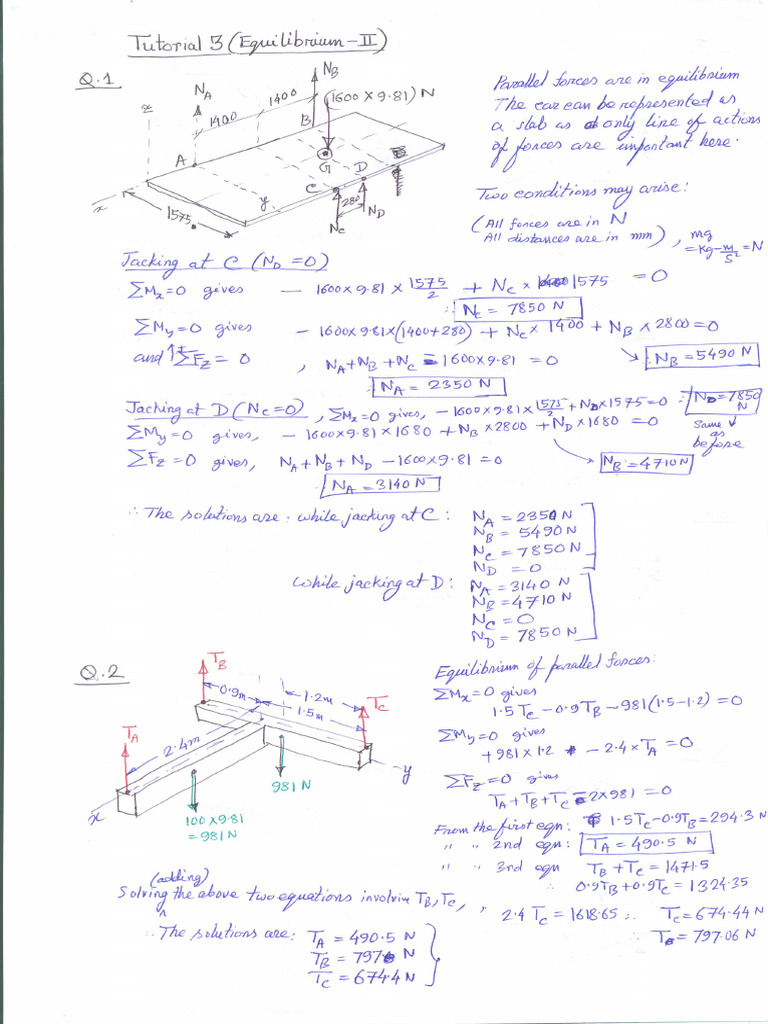 Tutorial 3 (Equilibrium-II)
Q.1
N_A
N_B
1400
1400
(1600 × 9.81) N
z
A
B
G
C
D
x
y
1575
280
N_C
N_D
Parallel forces are in equilibrium
The car can be represented as
a slab as only line of actions
of forces are important here.
Two conditions may arise:
(All forces are in N
All distances are in mm), mg
= kg-m/s² = N
Jacking at C (N_D = 0)
ΣMx=0 gives − 1600×9.81 × 1575/2 + N_C × 1575 = 0
∴ N_C = 7850 N
ΣMy=0 gives − 1600×9.81×(1400+280) + N_C × 1400 + N_B × 2800 = 0
N_B = 5490 N
and ↑+ ΣFz = 0, N_A + N_B + N_C − 1600×9.81 = 0
N_A = 2350 N
Jacking at D (N_C=0), ΣMx=0 gives, − 1600×9.81× 1575/2 + N_D×1575 = 0 ∴ N_D = 7850 N
Same as before
ΣMy=0 gives, − 1600×9.81×1680 + N_B × 2800 + N_D × 1680 = 0
N_B = 4710 N
ΣFz = 0 gives, N_A + N_B + N_D − 1600×9.81 = 0
N_A = 3140 N
∴ The solutions are: while jacking at C: N_A = 2350 N
N_B = 5490 N
N_C = 7850 N
N_D = 0
While jacking at D: N_A = 3140 N
N_B = 4710 N
N_C = 0
N_D = 7850 N
Q.2
T_B
T_A
T_C
0.9m
1.2m
1.5m
2.4m
x
y
981 N
100×9.81
= 981 N
Equilibrium of parallel forces:
ΣMx=0 gives
1.5 T_C − 0.9 T_B − 981(1.5−1.2) = 0
ΣMy=0 gives
+ 981×1.2 − 2.4×T_A = 0
ΣFz=0 gives
T_A + T_B + T_C − 2×981 = 0
From the first eqn: 1.5T_C − 0.9T_B = 294.3 N
" " 2nd eqn: T_A = 490.5 N
" " 3rd eqn T_B + T_C = 1471.5
∴ 0.9T_B + 0.9T_C = 1324.35
(adding)
Solving the above two equations involvin T_B, T_C, " 2.4 T_C = 1618.65 ∴ T_C = 674.44 N
∴ The solutions are: T_A = 490.5 N
T_B = 797 N
T_C = 674.4 N
∴ T = 797.06 N